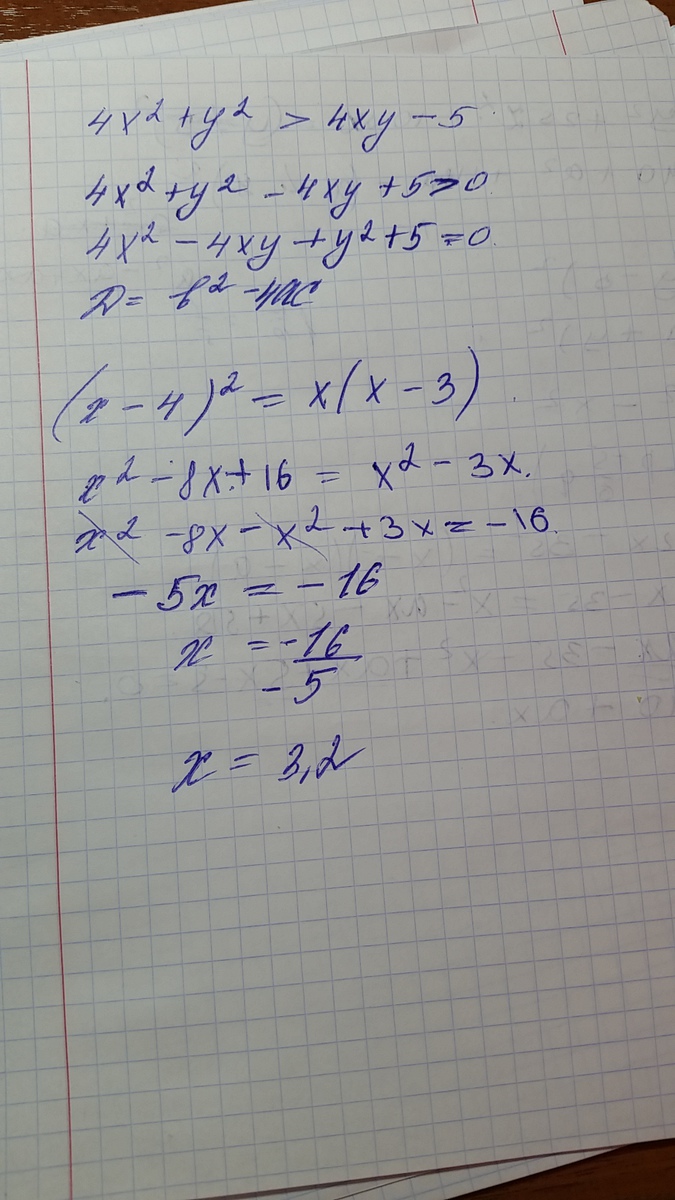 4x² + y² > 4xy - 5
4x² + y² - 4xy + 5 > 0.
4x² - 4xy + y² + 5 = 0.
D = b² - 4ac
(x - 4)² = x(x - 3)
x² - 8x + 16 = x² - 3x.
x² - 8x - x² + 3x = -16.
- 5x = - 16
x = -16/-5
x = 3,2